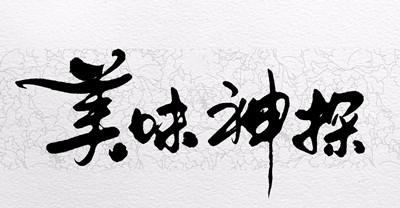 美味神探